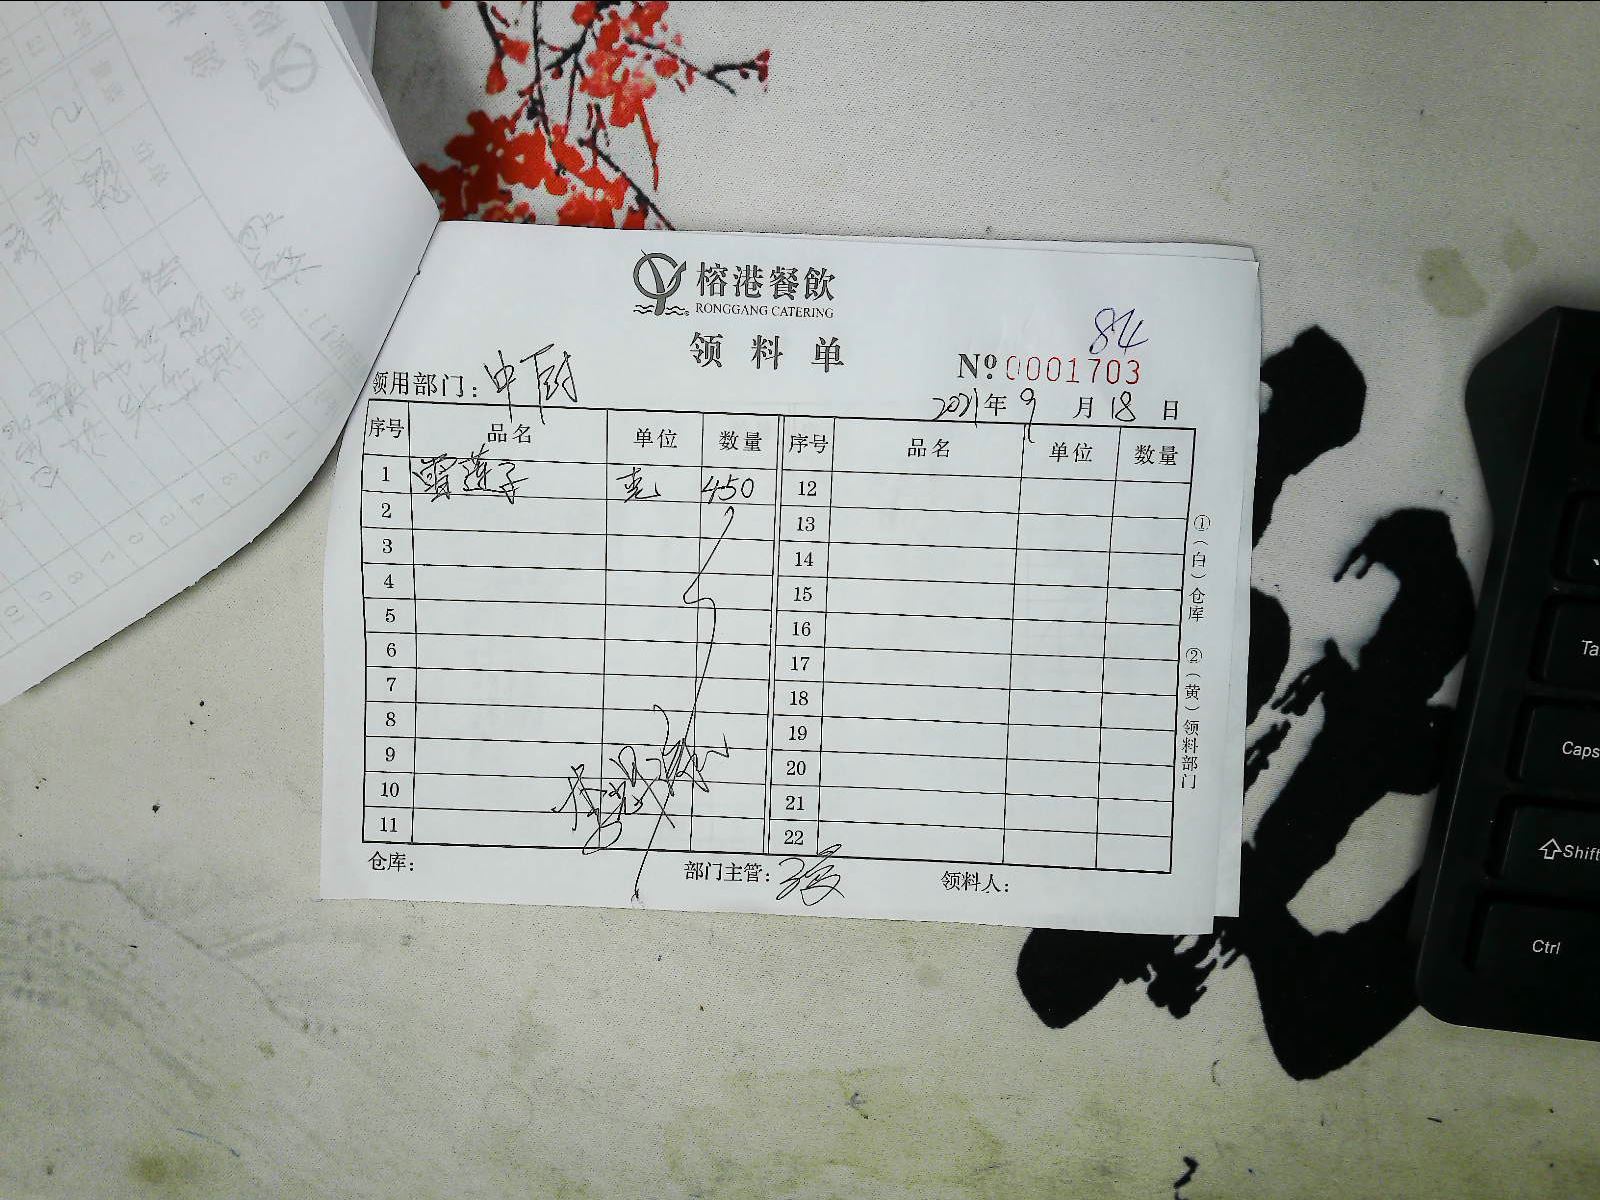 榕港餐飲
RONGGANG CATERING
领料单
84
№ 0001703
领用部门：中厨
2021年9月18日
序号 品名 单位 数量 序号 品名 单位 数量
1 雪莲子 克 450 12
2 13
3 14
4 15
5 16
6 17
7 18
8 19
9 20
10 21
11 22
①（白）仓库 ②（黄）领料部门
仓库： 部门主管： 领料人：
Caps
Shift
Ctrl